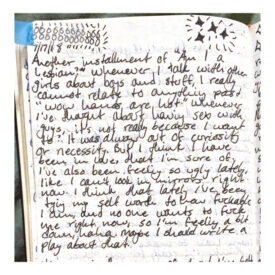 7/17/18
Another installment of "Am I a
Lesbian?" Whenever I talk with other
girls about boys and stuff, I really
cannot relate to anything past
"wow hands are hot" whenever
I've thought about having sex with
guys, it's not really because I want
to. It was always out of curiosity
or necessity. But I think I have
been in love, that I'm sure of.
I've also been feeling so ugly lately,
like I can't look in mirrors right
now. I think that lately I've been
tying my self worth to how fuckable
I am, and no one wants to fuck
me right now, so I'm feeling a bit
down, haha. Maybe I should write a
play about that.